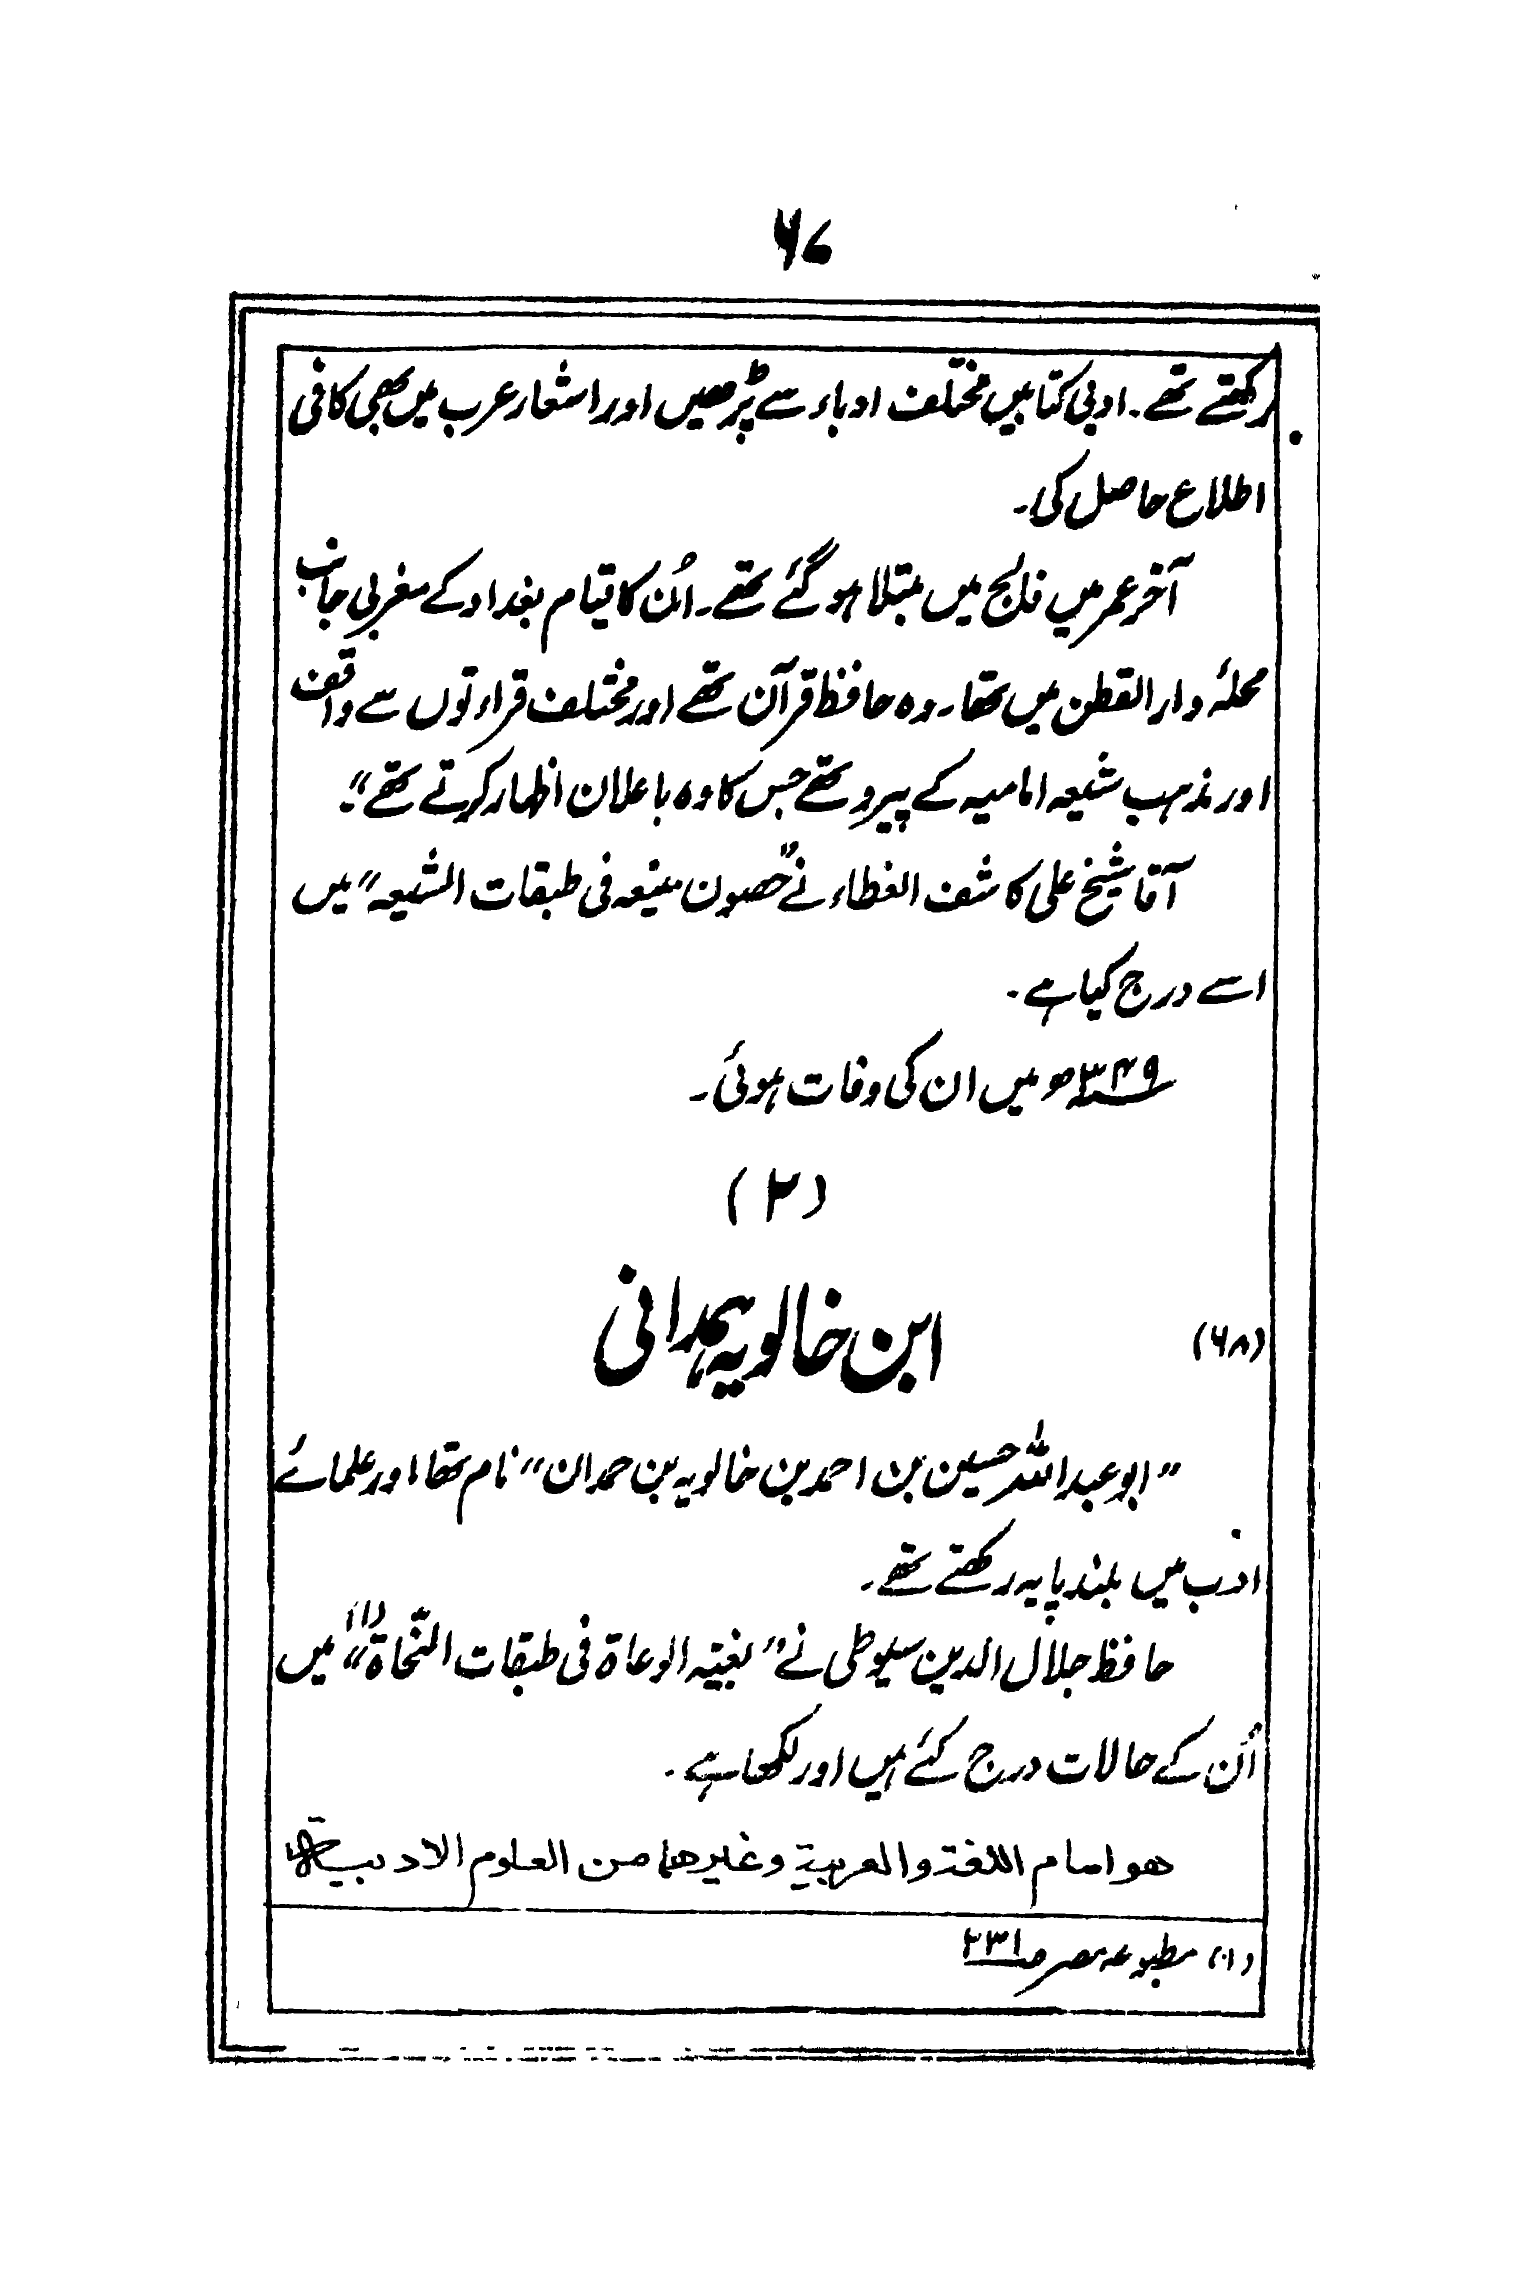 ۶۷
رکھتے تھے۔ ادبی کتابیں مختلف ادباء سے پڑھیں اور اشعار عرب میں بھی کافی
اطلاع حاصل کی۔
آخر عمر میں فالج میں مبتلا ہو گئے تھے۔ اُن کا قیام بغداد کے مغربی جانب
محلۂ دار القطن میں تھا۔ وہ حافظ قرآن تھے اور مختلف قراءتوں سے واقف
اور مذہب شیعہ امامیہ کے پیرو تھے جس کا وہ باعلان اظہار کرتے تھے"۔
آقا شیخ علی کاشف الغطاء نے "حصون منیعہ فی طبقات الشیعہ" میں
اسے درج کیا ہے۔
۳۴۹ھ میں ان کی وفات ہوئی۔
(۲)
(۶۸) ابن خالویہ ہمدانی
"ابو عبداللہ حسین بن احمد بن خالویہ بن حمدان" نام تھا اور علمائے
ادب میں بلند پایہ رکھتے تھے۔
حافظ جلال الدین سیوطی نے "بغیۃ الوعاۃ فی طبقات النحاۃ"(۱) میں
اُن کے حالات درج کئے ہیں اور لکھا ہے۔
هو امام اللغة والعربية وغيرهما من العلوم الادبية
(۱) مطبوعہ مصر ص۲۳۱